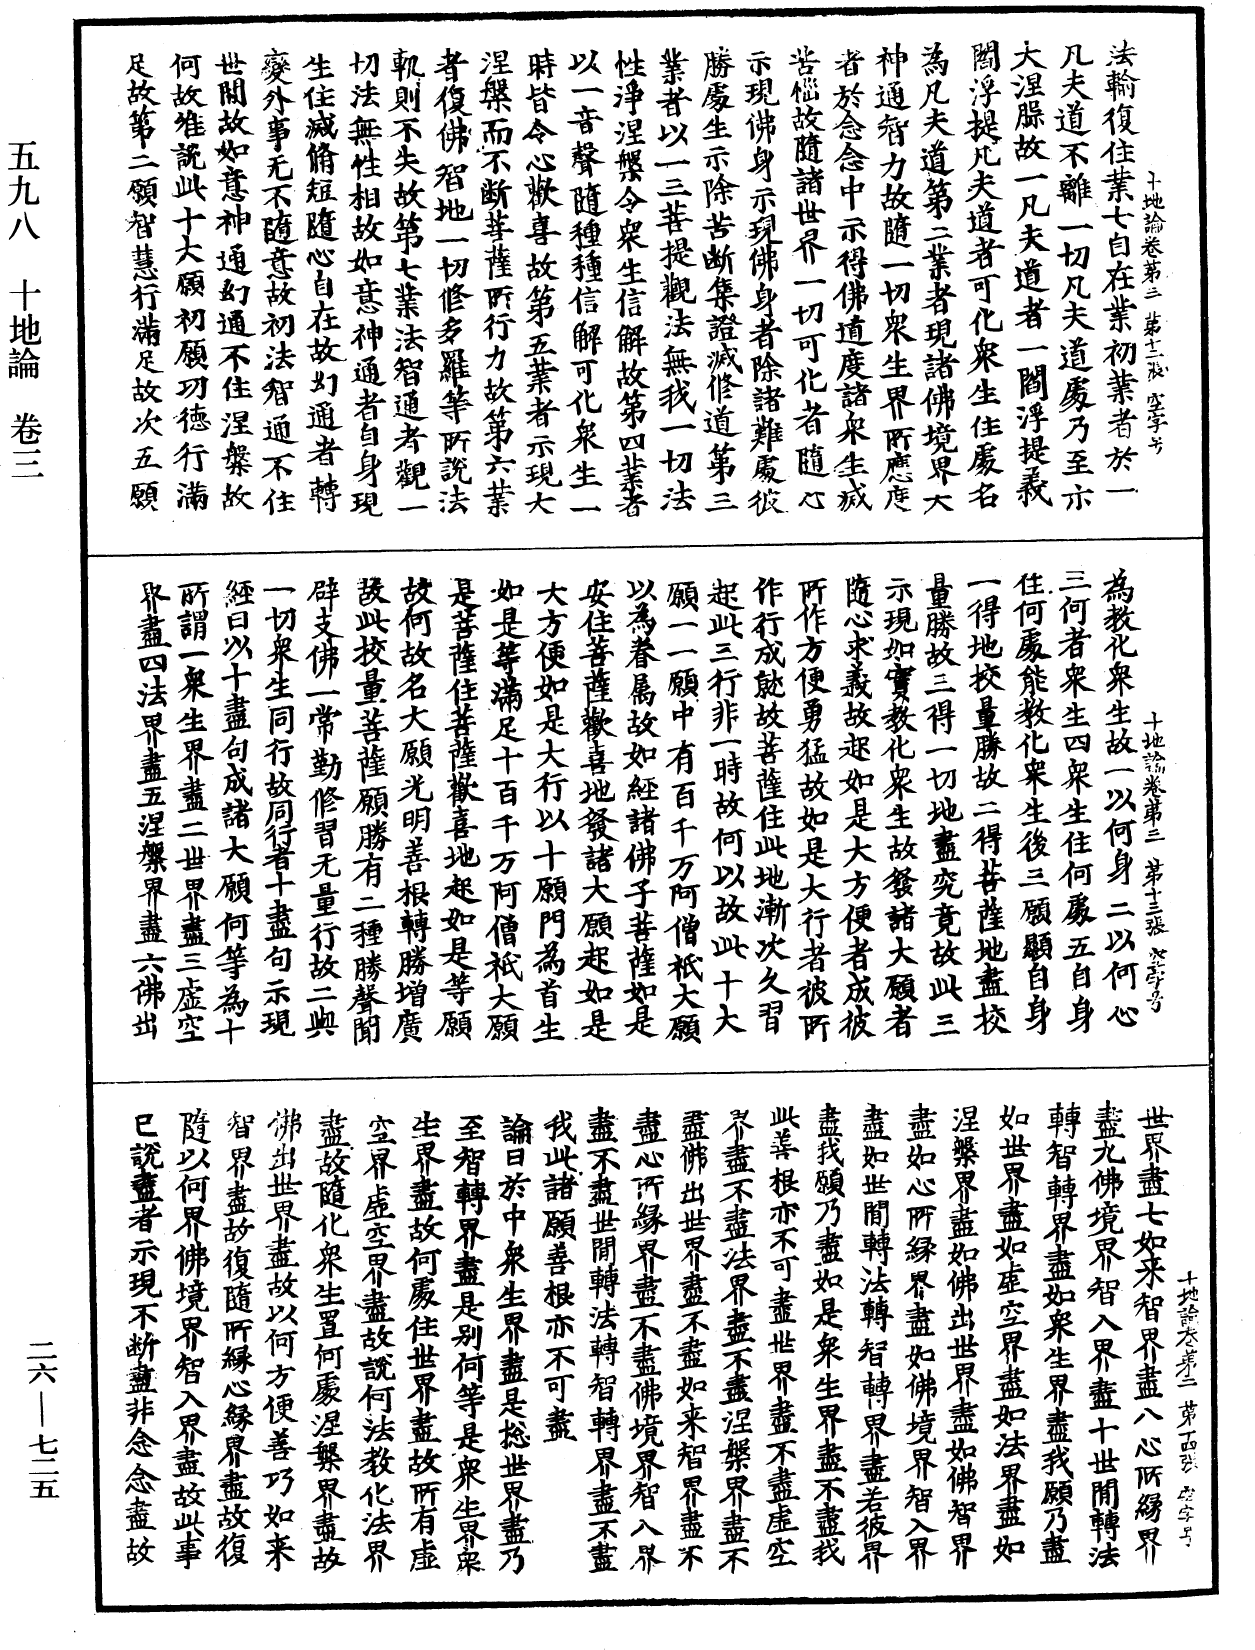 五九八 十地論 卷三
二六—七二五
十地論卷第三 第十二張 空字号
法輪復住業七自在業初業者於一
凡夫道不離一切凡夫道處乃至示
大涅槃故一凡夫道者一閻浮提義
閻浮提凡夫道者可化衆生住處名
為凡夫道第二業者現諸佛境界大
神通智力故隨一切衆生界所應度
者於念念中示得佛道度諸衆生滅
苦惱故隨諸世界一切可化者隨心
示現佛身示現佛身者除諸難處彼
勝處生示除苦斷集證滅修道第三
業者以一三菩提觀法無我一切法
性淨涅槃令衆生信解故第四業者
以一音聲隨種種信解可化衆生一
時皆令心歡喜故第五業者示現大
涅槃而不斷菩薩所行力故第六業
者復佛智地一切修多羅等所說法
軌則不失故第七業法智通者觀一
切法無性相故如意神通者自身現
生住滅脩短隨心自在故幻通者轉
變外事无不隨意故初法智通不住
世間故如意神通幻通不住涅槃故
何故唯說此十大願初願功德行滿
足故第二願智慧行滿足故次五願
十地論卷第三 第十三張 空字号
為教化衆生故一以何身二以何心
三何者衆生四衆生住何處五自身
住何處能教化衆生後三願顯自身
一得地挍量勝故二得菩薩地盡挍
量勝故三得一切地盡究竟故此三
示現如實教化衆生故發諸大願者
隨心求義故起如是大方便者成彼
所作方便勇猛故如是大行者彼所
作行成就故菩薩住此地漸次久習
起此三行非一時故何以故此十大
願一一願中有百千万阿僧祇大願
以為眷属故如經諸佛子菩薩如是
安住菩薩歡喜地發諸大願起如是
大方便如是大行以十願門為首生
如是等滿足十百千万阿僧祇大願
是菩薩住菩薩歡喜地起如是等願
故何故名大願光明善根轉勝增廣
故此挍量菩薩願勝有二種勝聲聞
辟支佛一常勤修習无量行故二與
一切衆生同行故同行者十盡句示現
經曰以十盡句成諸大願何等為十
所謂一衆生界盡二世界盡三虛空
界盡四法界盡五涅槃界盡六佛出
十地論卷第三 第十四張 空字号
世界盡七如来智界盡八心所緣界
盡九佛境界智入界盡十世間轉法
轉智轉界盡如衆生界盡我願乃盡
如世界盡如虛空界盡如法界盡如
涅槃界盡如佛出世界盡如佛智界
盡如心所緣界盡如佛境界智入界
盡如世間轉法轉智轉界盡若彼界
盡我願乃盡如是衆生界盡不盡我
此善根亦不可盡世界盡不盡虛空
界盡不盡法界盡不盡涅槃界盡不
盡佛出世界盡不盡如来智界盡不
盡心所緣界盡不盡佛境界智入界
盡不盡世間轉法轉智轉界盡不盡
我此諸願善根亦不可盡
論曰於中衆生界盡是揔世界盡乃
至智轉界盡是別何等是衆生界衆
生界盡故何處住世界盡故所有虛
空界虛空界盡故說何法教化法界
盡故隨化衆生置何處涅槃界盡故
佛出世界盡故以何方便善巧如来
智界盡故復隨所緣心緣界盡故復
隨以何界佛境界智入界盡故此事
已說盡者示現不斷盡非念念盡故